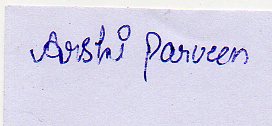 Arshi Parveen